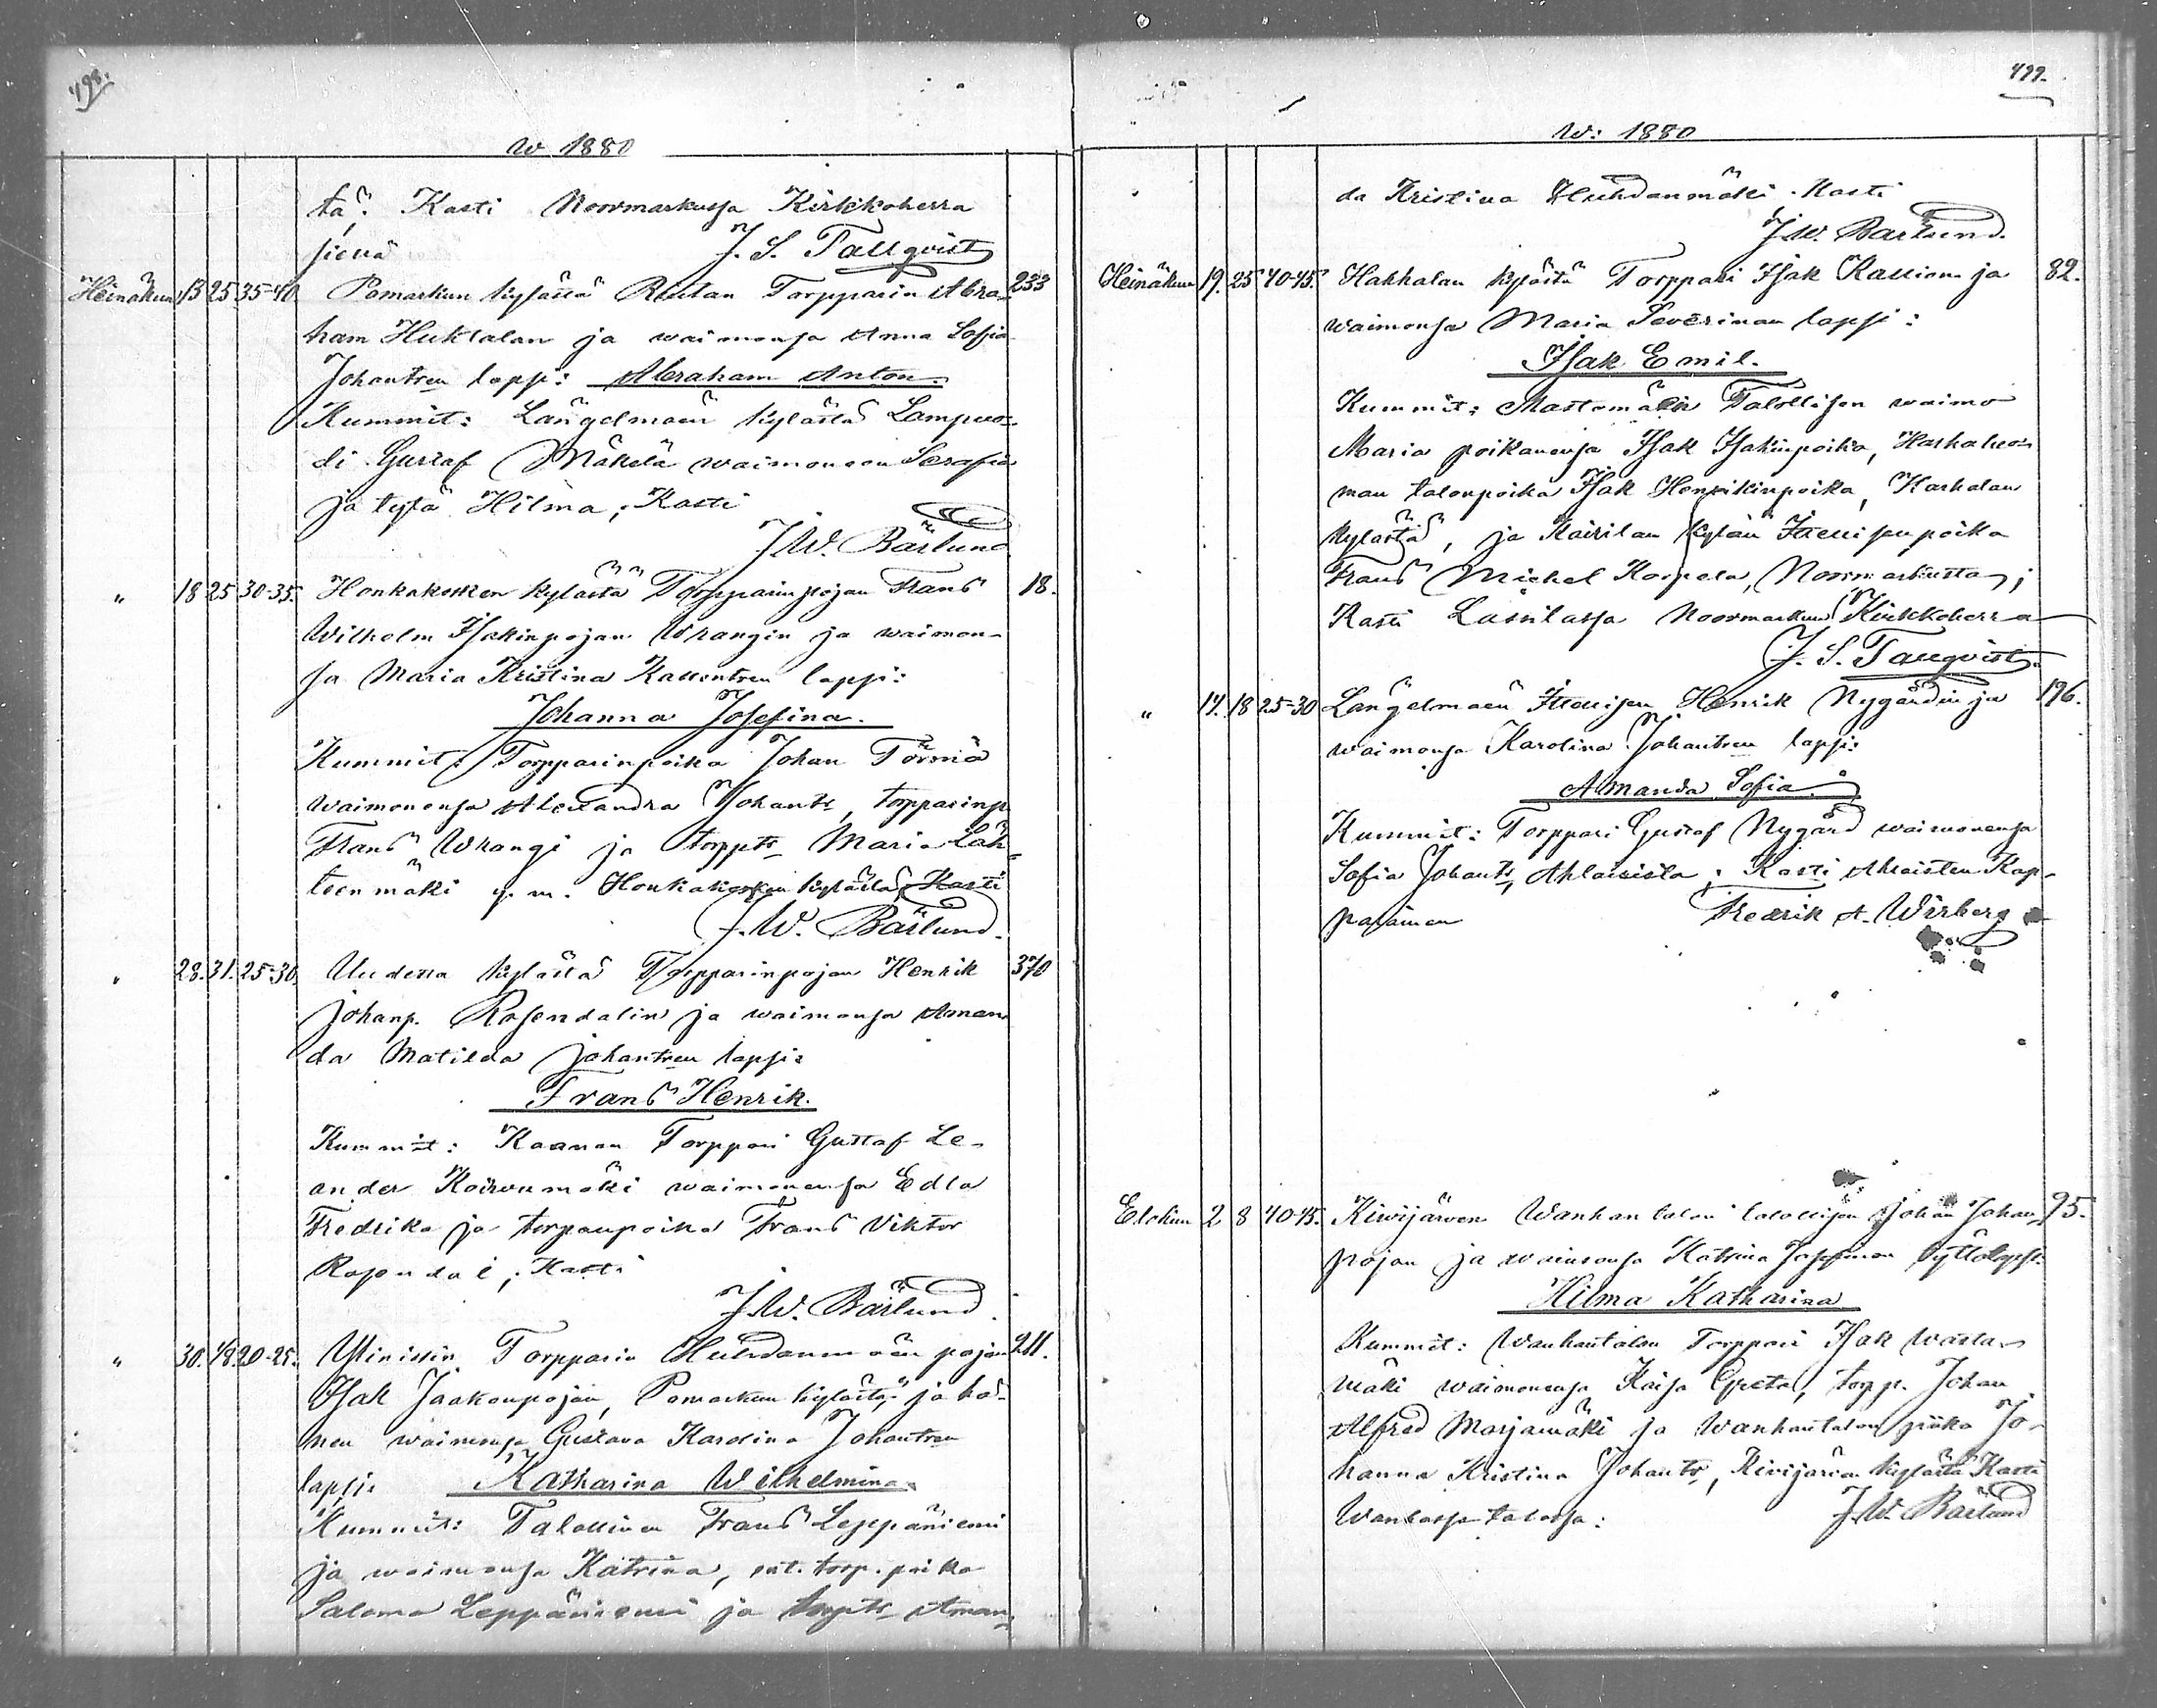 498.
w 1880
tä. Kasti Noormarkussa Kirkkoherra
J. S. Tallqvist
Heinäkuu 13 25 35-40 Pomarkun kylästä Torpparin Abra- 233
ham Huktalan ja waimonsa Anna Sofia
Johantren lapsi: Abraham Anton.
Kummit: Längelmaen kylästä Lampuo-
di Gustaf Mäkelä waimoneen Serafia
ja tytä Hilma; Kasti
J. W. Bärlund
" 18 25 30-35. Honkakosken kylästä Torpparinpojan Frans 18.
Wilhelm Isakinpojan Wrangin ja waimon-
sa Maria Kristina Kallentren lapsi:
Johanna Josefina.
Kummit: Torpparinpoika Johan Törmä
waimonensa Alexandra Johantr, torpparinp.
Frans Wrangi ja torpptr Maria Läh-
teenmäki y. m. Honkakosken kylästä Kasti
J. W. Bärlund.
" 28. 31. 25-30. Uudesta kylästä Torpparinpojan Henrik 370
Johanp. Rosendalin ja waimonsa Aman-
da Matilda Johantren lapsi:
Frans Henrik.
Kummit: Kaanan Torppari Gustaf Le-
ander Koiwumäki waimonensa Edla
Fredrika ja torpanpoika Frans Viktor
Rosendal; Kasti
J. W. Bärlund.
" 30. 1/8 20-25. Torpparin Huhdanmäen pojan 211.
Isak Jaakonpojan, Pomarkun kylästä, ja hä-
nen waimonsa Gustava Karolina Johantren
lapsi: Katharina Wilhelmina.
Kummit: Talollinen Frans Leppäniemi
ja waimonsa Katrina, torp. poika
Salomo Leppäniemi ja torptr Aman-
499.
W: 1880
da Kristina Huhdanmäki. Kasti
J. W. Bärlund.
Heinäkuu 19. 25 40-45. Hakhalan kylästä Torppari Isak Kallion ja 82.
waimonsa Maria Severinan lapsi:
Isak Emil.
Kummit: Mastomäen Talollisen waimo
Maria poikanensa Isak Isakinpoika,
man talonpoika Isak Henrikinpoika,
kylästä, ja Kairilan kylän Itellisenpoika
Frans Michel Korpela, Noormarkusta;
Kasti Lassilassa Noormarkun Kirkkoherra
J. S. Tallqvist.
" 17. 18 25-30 Längelmaen Itellisen Henrik Nygårdin ja 196.
waimonsa Karolina Johantren lapsi:
Amanda Sofia.
Kummit: Torppari Gustaf Nygård waimonensa
Sofia Johantr, Ahlaisista; Kasti Ahlaisten Kap-
palainen Fredrik A. Wirberg
Elokuu 2 8 40-45. Kiwijärven Wanhantalon talollisen Johan Johan- 95.
pojan ja waimonsa Katrina Josefinan tyttölapsi:
Hilma Katharina
Kummit: Wanhantalon Torppari Isak Wasta-
mäki waimonensa Kaisa Greta, torpp. Johan
Alfred Marjamäki ja Wanhantalon piika Jo-
hanna Kristina Johantr, Kiwijärven kylästä Kasti
Wanhassa talossa: J. W. Bärlund